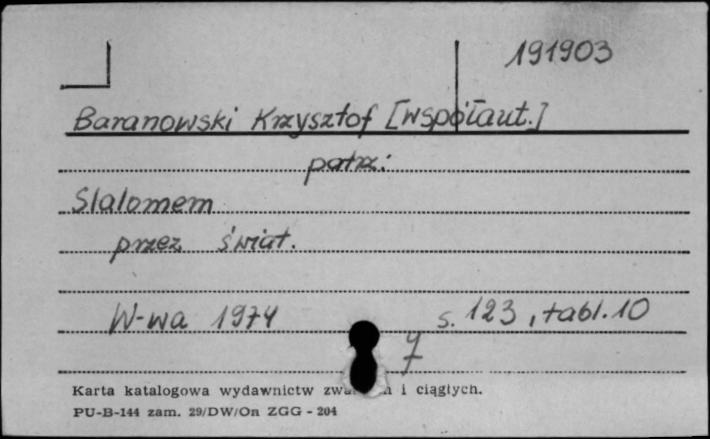 191903
Baranowski Krzysztof [współaut.]
patrz:
Slalomem
przez świat.
W-wa 1974 s. 123, tabl. 10
7
Karta katalogowa wydawnictw i ciągłych.
PU-B-144 zam. 29/DW/On ZGG - 204